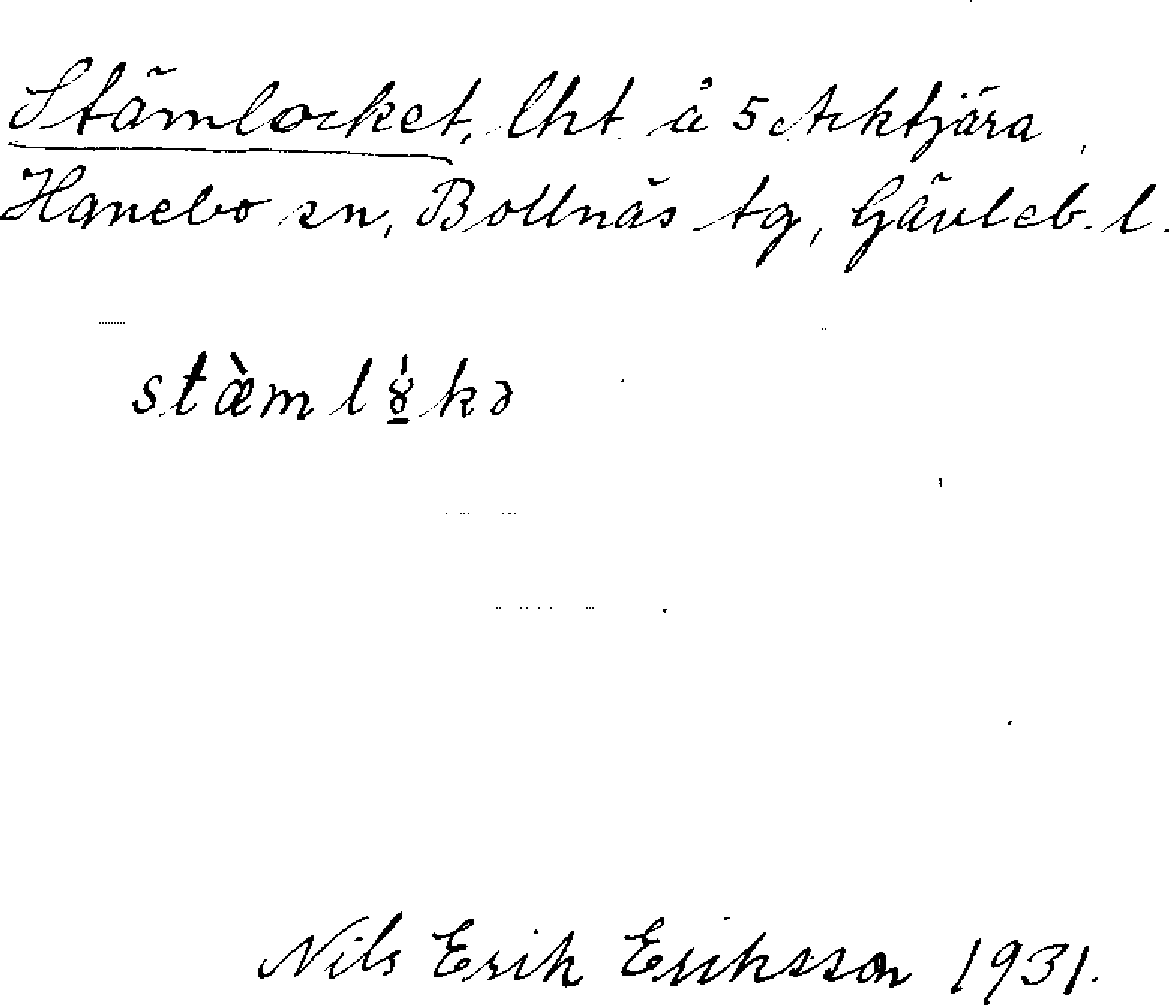 Stämlocket, lht å 5 Arktjära,
Hanebo sn, Bollnäs tg, Gävleb. l.
stæ̀mlø̱̍kə
Nils Erik Eriksson 1931.